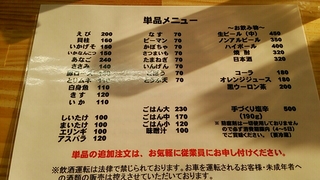 単品メニュー
えび 200
貝柱 160
いかげそ 150
いかなんこつ 150
あなご 240
ささみ 140
白身魚 110
きす 120
いか 110
しいたけ 100
まいたけ 100
エリンギ 100
アスパラ 100
なす 70
ピーマン 70
かぼちゃ 70
さつまいも 70
たまねぎ 70
いんげん 70
ごはん大 230
ごはん中 180
ごはん小 130
味噌汁 100
～お飲み物～
生ビール（中） 450
ノンアルビール 350
ハイボール 400
焼酎 320
日本酒 380
コーラ 180
オレンジジュース 180
黒ウーロン茶 200
手づくり塩辛 500
(190g)
単品の追加注文は、お気軽に従業員にお申し付けください。
※飲酒運転は法律で禁じられております。お車を運転されるお客様・未成年者へ
の酒類の販売は控えさせていただいております。